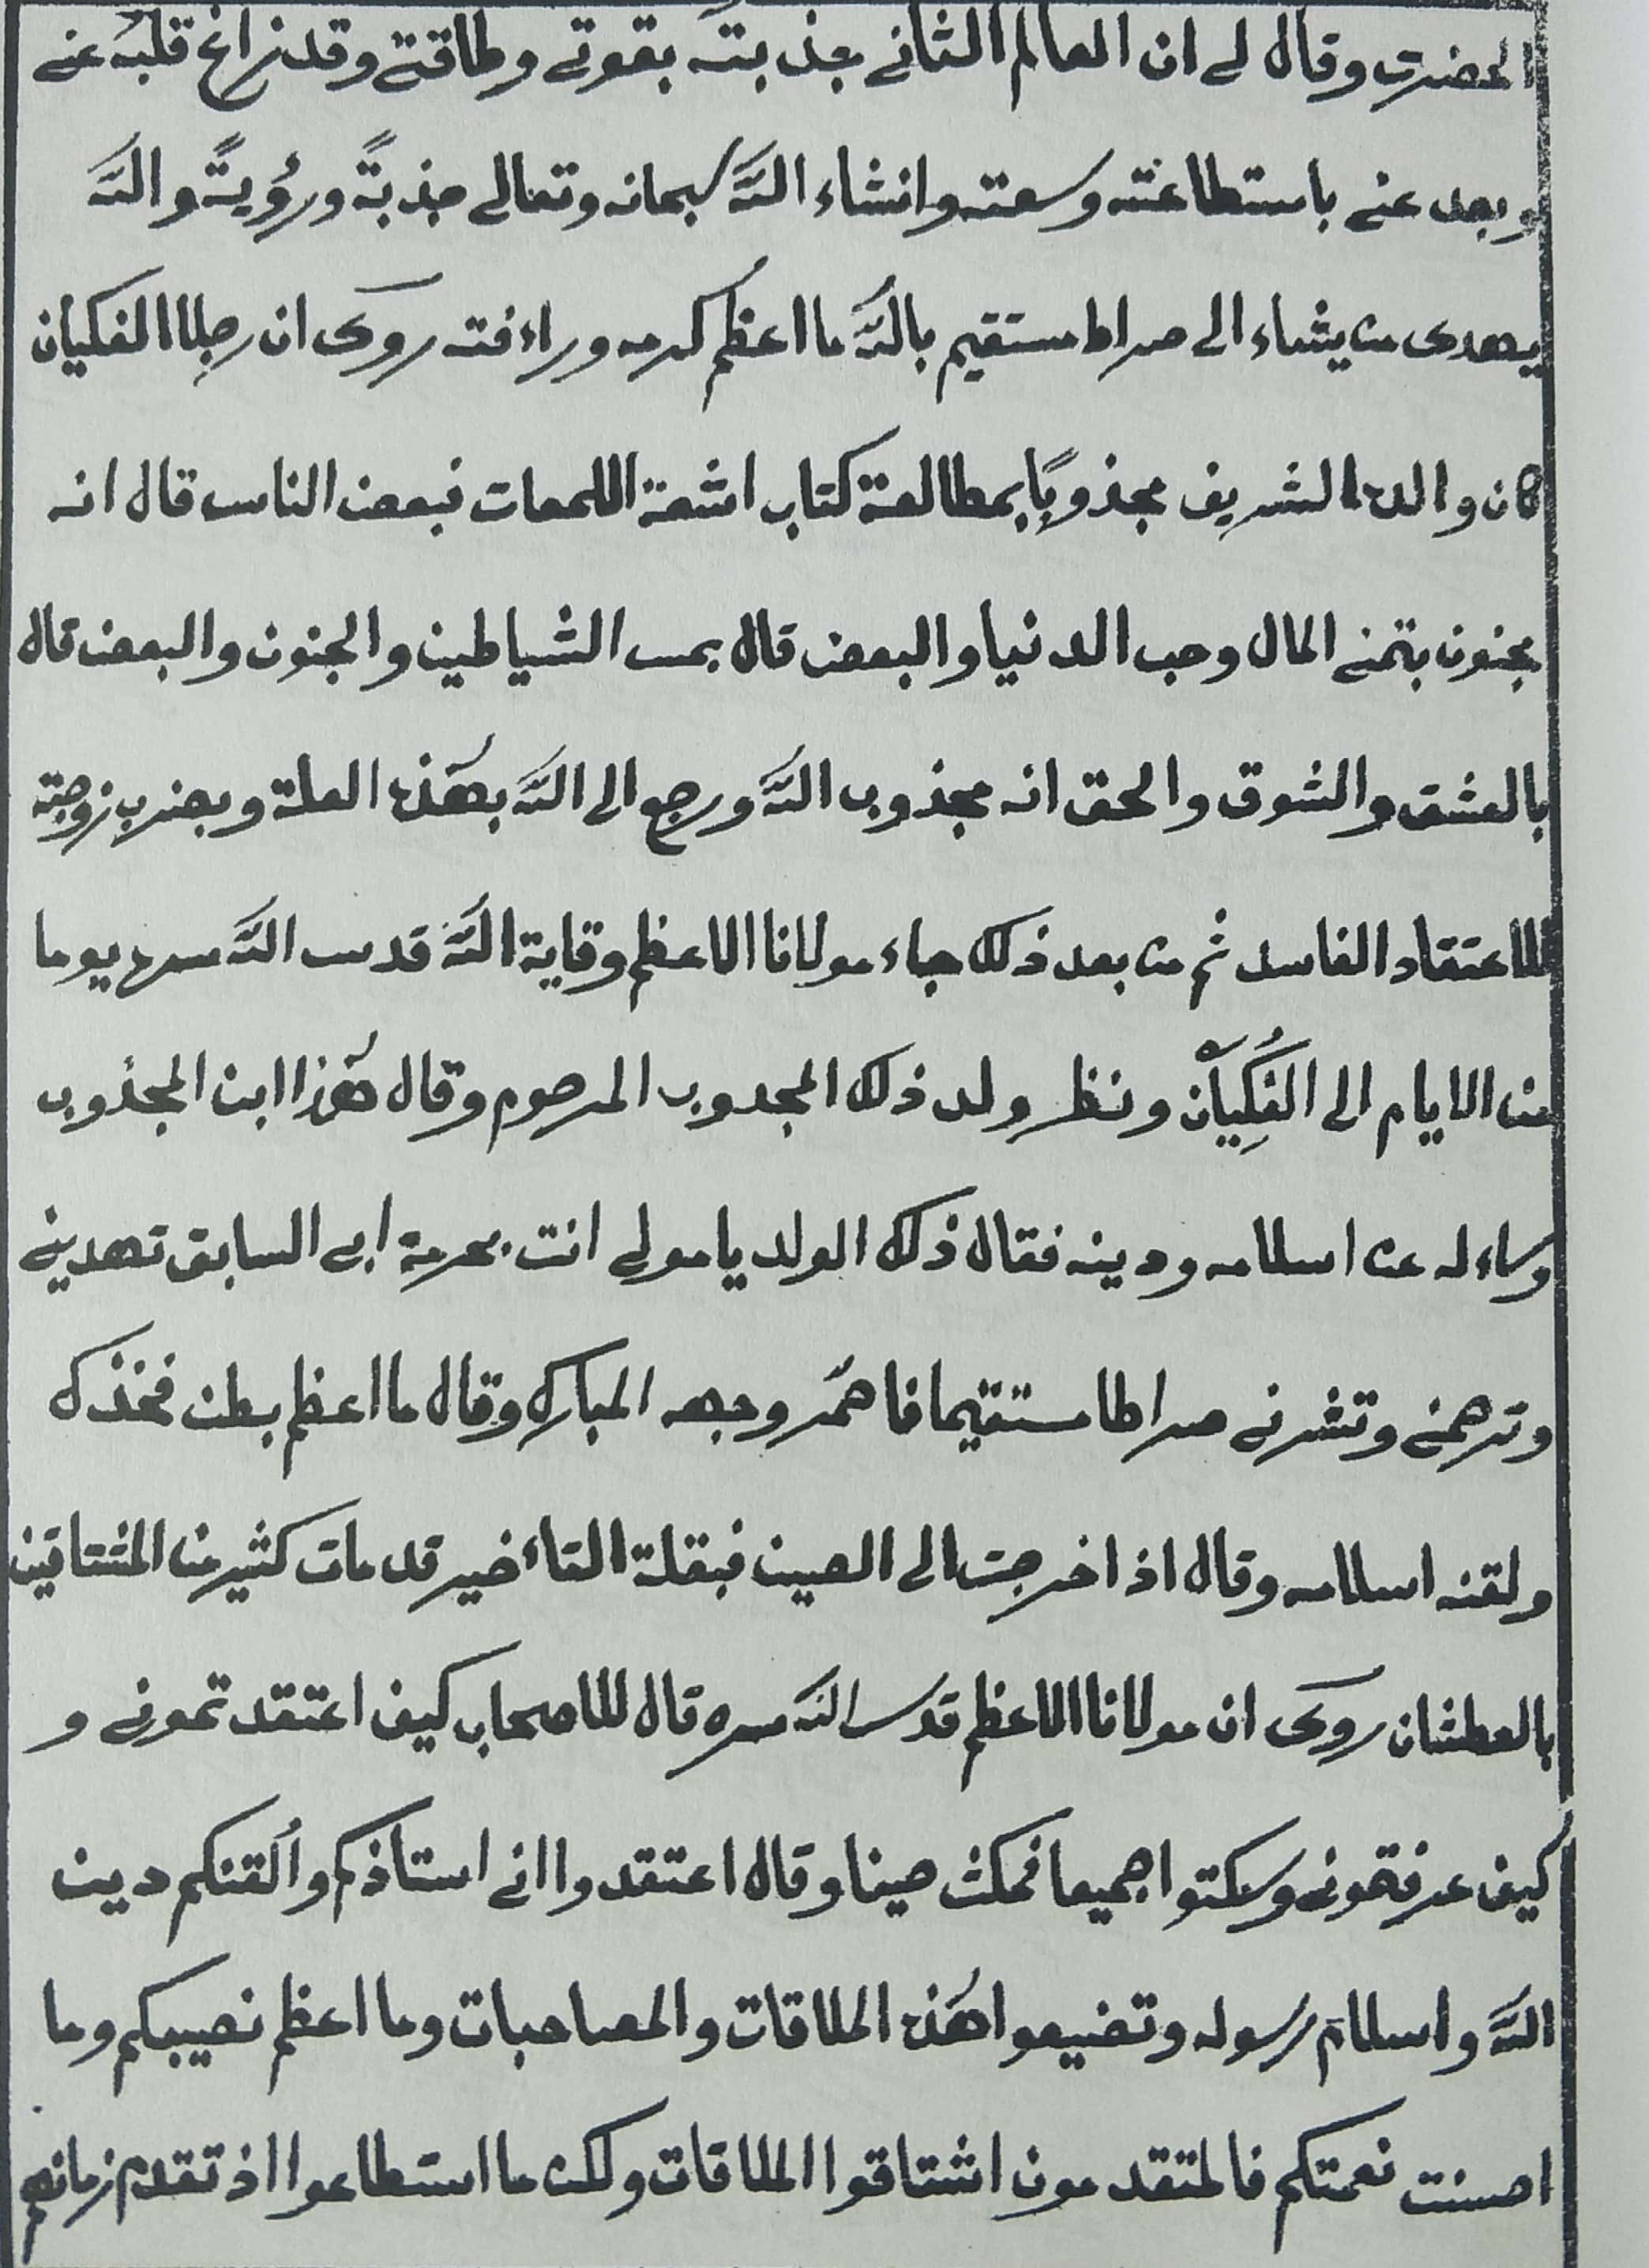 الحضرت وقال لى ان العالم الثانى جذبتہ بقوتى وطاقتى وقد زاغ قلبہ عنى
وبعد عنى باستطاعته وسعته وانشاء اللہ سبحانه وتعالى جذبةً ورؤيةً واللہ
يهدى من يشاء الى صراط مستقيم باللہ ما اعظم كرمه وراءفته روى ان رجلا الفكيان
كان والده الشريف مجذوبًا بمطالعة كتاب اشعة اللمعات فبعض الناس قال انه
مجنون بتمنى المال وحب الدنيا والبعض قال بمس الشياطين والجنون والبعض قال
بالعشق والشوق والحق انه مجذوب اللہ ورجع الى اللہ بهٰذه العلة وبضرب زوجته
للاعتقاد الفاسد ثم من بعد ذلك جاء مولانا الاعظم وقاية اللہ قدس اللہ سره يوما
من الايام الى الفُكِيَانْ ونظر ولد ذلك المجدوب المرحوم وقال هٰذا ابن المجذوب
وساءله عن اسلامه ودينه فقال ذلك الولد يا مولى انت بحرمة ابى السابق تهدينى
وترحمنى وتشرنى صراطا مستقيما فاحمَّر وجهه المبارك وقال ما اعظم بطن فخذك
ولقنه اسلامه وقال اذ اخرجت الى الصين فبقلة التاءخير قد مات كثير من المشتاقين
بالعطشان روى ان مولانا الاعظم قدس اللہ سره قال للاصحاب كيف اعتقد تمونى و
كيف عرفتمونى وسكتوا جميعا فمكث حينا وقال اعتقدوا انى استاذكم وألقنكم دين
اللہ واسلام رسوله وتضيعوا هٰذه الملاقات والمصاحبات وما اعظم نصيبكم وما
احسنت نعمتكم فالمتقدمون اشتاقوا الملاقات ولكن ما استطاعوا اذ تقدم زمانهم